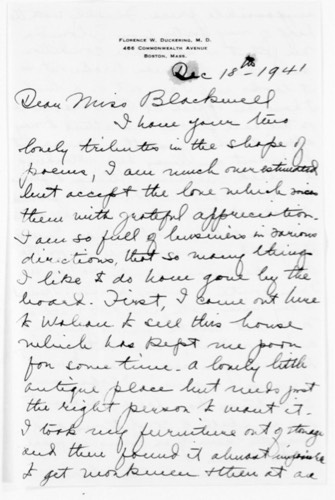 FLORENCE W. DUCKERING, M. D.
466 COMMONWEALTH AVENUE
BOSTON, MASS.
Dec 18th - 1941
Dear Miss Blackwell
I have your two
lovely tributes in the shape of
poems, I am much over estimated
but accept the love which
them with grateful appreciation.
I am so full of business in various
directions, that so many things
I like to do have gone by the
board. First, I came out here
to to sell this house
which has kept me poor
for some time. a lovely little
antique place but needs just
the right person to want it.
I took my furniture out of storage
and then found it almost impossible
to get workmen & then at